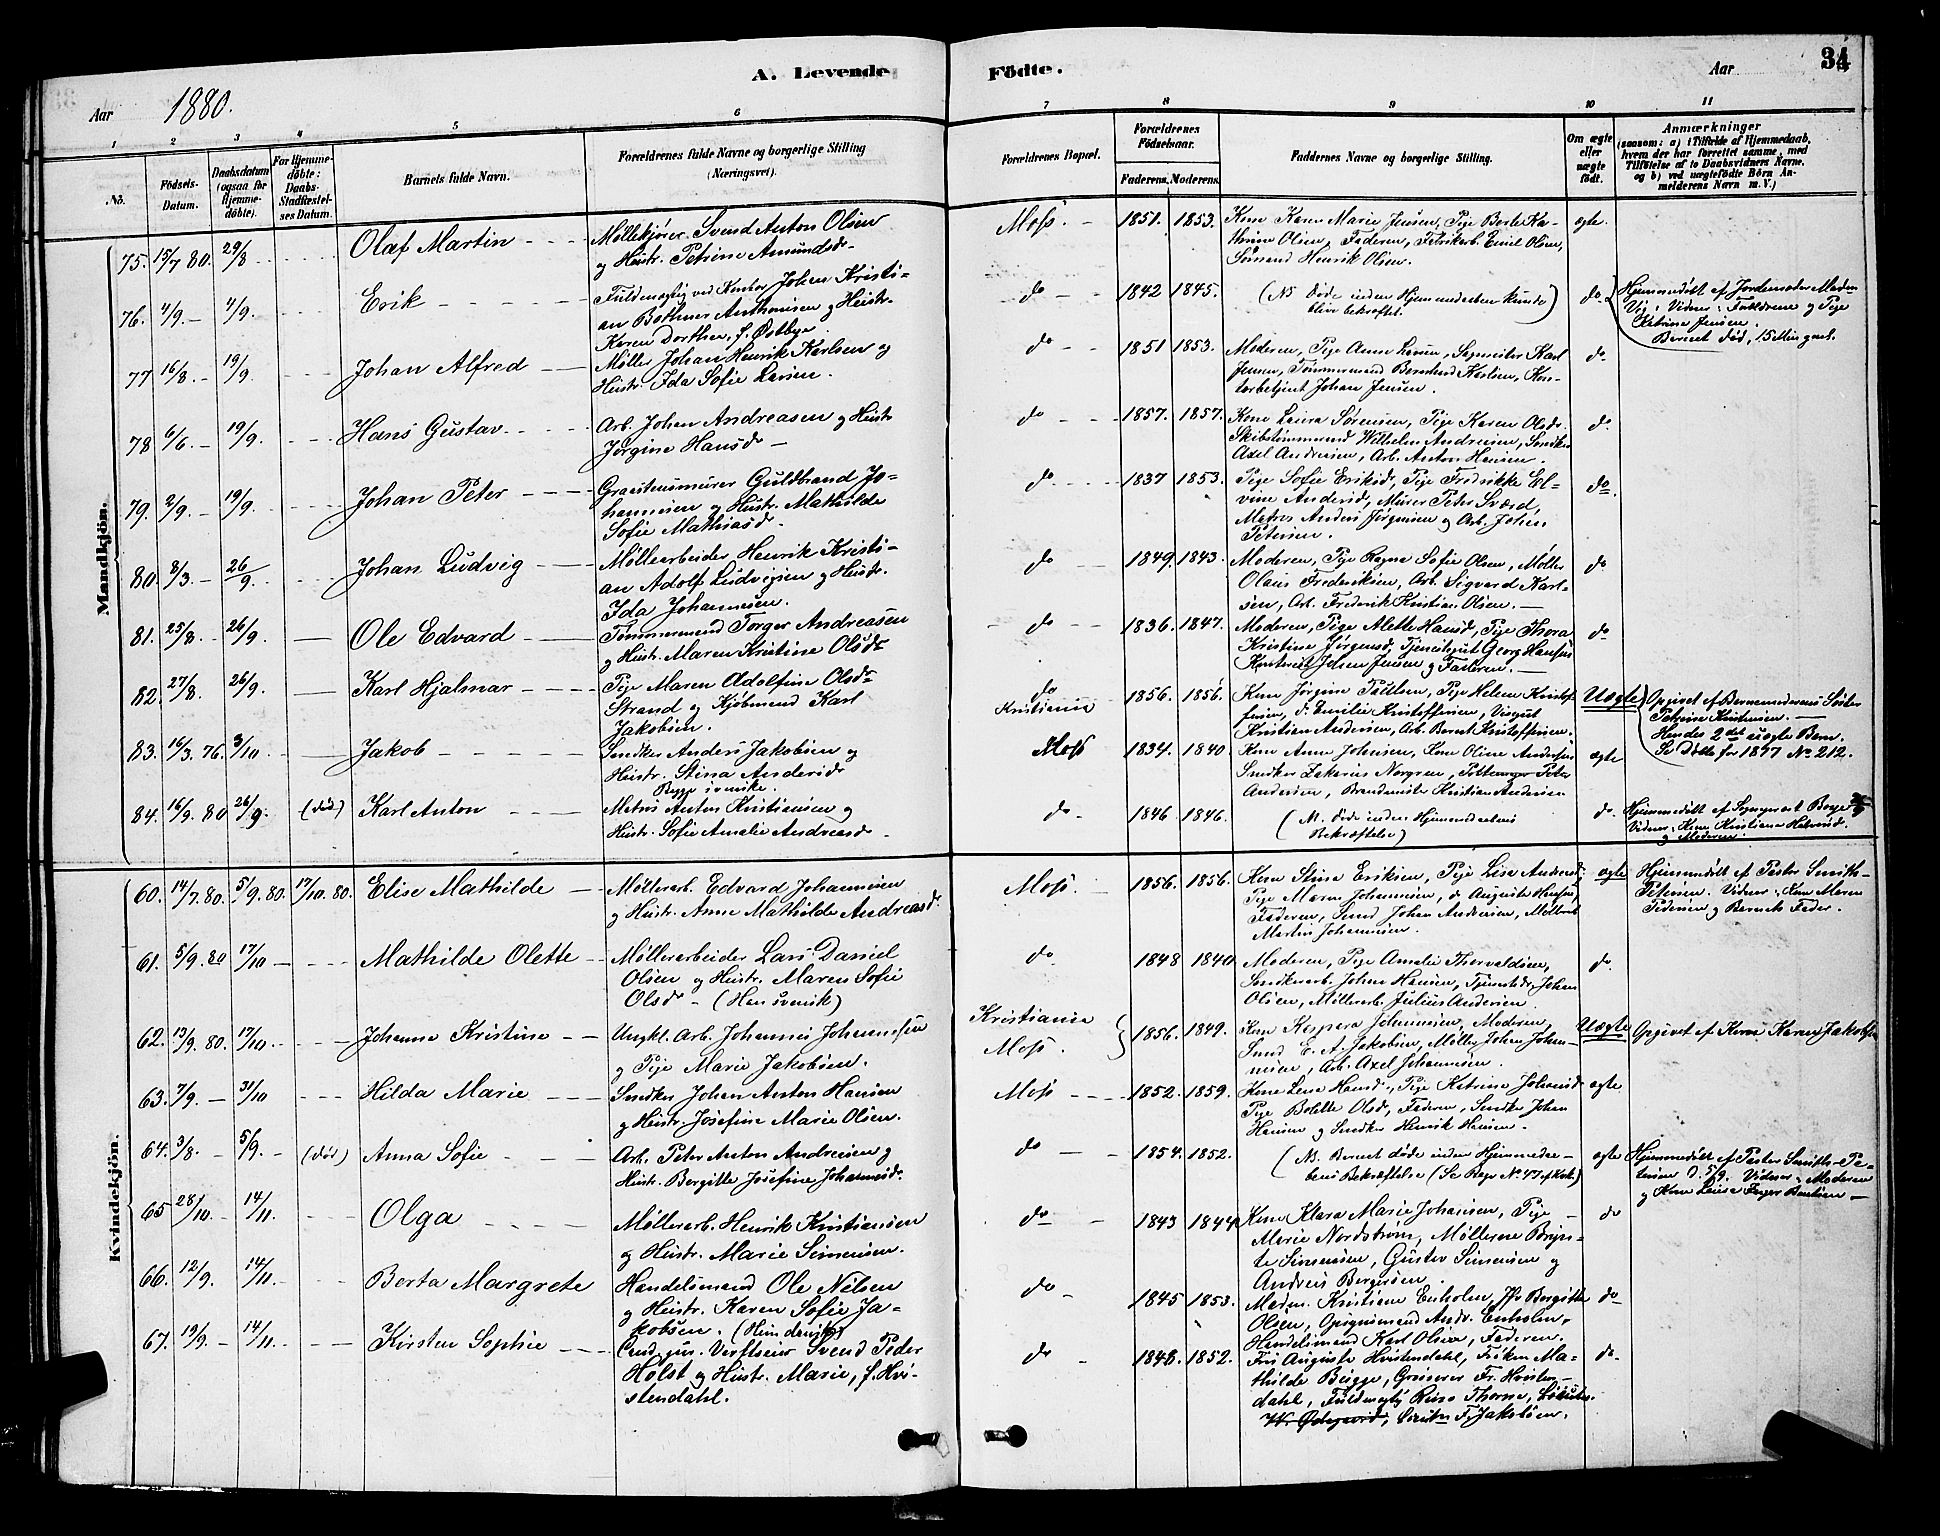 A. Levende Födte.
34
Aar 1880.
Aar
1 2 3 4 5 6 7 8 9 10 11
No.
Födsels-Datum.
Daabsdatum (ogsaa för Hjemme-döbte).
For Hjemme-döbte: Daabs-Stadfæstel-ses Datum.
Barnets fulde Navn.
Forældrenes fulde Navne og borgerlige Stilling (Næringsvei).
Forældrenes Bopæl.
Forældrenes Födselsaar.
Faderens. Moderens.
Faddernes Navne og borgerlige Stilling.
Om ægte eller uægte födt.
Anmærkninger (saasom: a) i Tilfælde af Hjemmedaab, hvem der har forrettet samme, med Tilföielse af to Daabsvidners Navne, og b) ved uægtefödte Börn Anmelderens Navn m. V.)
Mandkjön.
75. 15/7 80. 29/8 Olaf Martin Møllekjører Svend Anton Olsen
og Hustr. Petrine Amundsdr
Moss. 1851. 1853. Kone Karen Marie Jensen, Pige Berte Ka-
thrine Olsen, Faderen, Fabrikarb. Emil Olsen,
Sømand Henrik Olsen. ægte.
76. 4/9. 4/9. Erik Fuldmægtig ved Kontor Johan Kristi-
an Bothner Anthonisen og Hustr.
Karen Dorthea, f. Østbye.
do 1842 1845. (NB døde inden Hjemmedaaben kunde
blive bekræftet.) do. Hjemmedøbt af Jordemoder Madm
Vig. Vidner: Forældrene og Pige
Katrine Jensen.
Barnet død, 15 Min. gml.
77 16/8. 19/9. Johan Alfred Møller Johan Henrik Karlsen og
Hustr. Ida Sofie Larsen.
do 1851 1853. Moderen, Pige Anne Larsen, Sagmester Karl
Jensen, Tømmermand Bernhard Karlsen, Kon-
torbetjent Johan Jensen. do.
78 6/6. 19/9. Hans Gustav Arb. Johan Andreasen og Hustr
Jørgine Hansdr
do 1857. 1857. Kone Laura Sørensen, Pige Karen Olsdr.
Skibstømmermand Wilhelm Andersen, Snedker
Axel Andersen, Arb. Anton Hansen. do.
79. 2/9. 19/9. Johan Peter Graastensmurer Guldbrand Jo-
hannesen og Hustr. Mathilde
Sofie Mathiasdr.
do 1837 1853. Pige Sofie Eriksdr, Pige Fredrikke El-
vine Andersdr, Murer Peter Sværd,
Matros Anders Jørgensen og Arb. Johan
Petersen. do.
80. 8/3. 26/9. Johan Ludvig Møllearbeider Henrik Kristi-
an Adolf Ludvigsen og Hustr.
Ida Johannesen.
do 1849. 1843. Moderen, Pige Ragna Sofie Olsen, Møller
Olaus Frederiksen, Arb. Sigvard Karl-
sen, Arb. Frederik Kristian Olsen. do
81. 25/8. 26/9. Ole Edvard Tømmermand Torger Andreasen
og Hustr. Maren Kristine Olsdr
do 1836. 1847. Moderen, Pige Alette Hansdr, Pige Thora
Kristine Jørgensdr, Tjenestegut Georg Hansen
Johan Jensen og Faderen. do
82. 27/8. 26/9. Karl Hjalmar Pige Maren Adolfine Olsdr
Strand og Kjøbmand Karl
Jakobsen.
do Kristiania 1856. 1856. Kone Jørgine Paulsen, Pige Helene Kristof-
fersen, d. Emilie Kristoffersen, Visegut
Kristian Andersen, Arb. Bernt Kristoffersen. Uægte Opgivet af Barnemoderens Søster
Petrine Kristensen.
Hendes 2det uægte Barn.
Se Døbte for 1877 No 212.
83. 16/3. 76. 3/10 Jakob Snedker Anders Jakobsen og
Hustr. Stina Andersdr
Begge svenske.
Moss 1834. 1840. Kone Anne Johnsen, Kone Oline Andersen
Snedker Zakarias Norgren, Pottemager Peter
Andersen, Brandmester Kristian Andersen ægte
84. 16/9. 80 26/9. (død) Karl Anton Matros Anton Kristiansen og
Hustr. Sofie Amalie Andreasdr
do. 1846 1846. (NB. døde inden Hjemmedaabens
Bekræftelse) do. Hjemmedøbt af
Vidner: Kone Kristiane Halvorsdr.
og Moderen.
Kvindekjön.
60. 14/7. 80. 5/9. 80. 17/10. 80. Elise Mathilde Møllearb. Edvard Johannesen
og Hustr. Anne Mathilde Andreasdr
Moss. 1856. 1856. Kone Stine Eriksen, Pige Lise Andersdr
Pige Maren Johannesen, d. Auguste Hansen,
Faderen, Smed Johan Andersen, Møllearb
Martin Johannesen. ægte Hjemmedøbt af Pastor Smith-
Petersen. Vidner: Kone Maren
Pedersen og Barnets Fader.
61. 5/9. 80 17/10 Mathilde Olette Møllearbeider Lars Daniel
Olsen og Hustr. Maren Sofie
Olsdr (Han svensk)
do 1848 1840 Moderen, Pige Amalie Thorvaldsen,
Snedkerarb. Johan Hansen, Tjenestedr. Johan
Olsen, Møllearb. Julius Andersen. do.
62. 13/9. 80. 17/10. Johanne Kristine Ungkl. Arb. Johannes Johannesen
og Pige Marie Jakobsen.
Kristiania
Moss. 1856. 1849. Kone Kaspara Johannesen, Moderen,
Smed E. A. Jakobsen, Møller Johan Johan-
nesen, Arb. Axel Johannesen. Uægte Opgivet af Kone Karen Jakobsen
63. 7/9. 31/10 Hilda Marie Snedker Johan Anton Hansen
og Hustr. Josefine Marie Olsen.
Moss 1852. 1859. Kone Lena Hansdr, Pige Katrine Johansdr
Pige Bolette Olsdr, Faderen, Snedker Johan
Hansen og Snedker Henrik Hansen. ægte
64. 3/8. 5/9. (død) Anna Sofie Arb. Peter Anton Andersen og
Hustr. Bergitte Josefine Johannesdr.
do 1854. 1852. (NB. Barnet døde inden Hjemmedaa-
bens Bekræftelse (Se Begr. No 47 af Kvk.) ægte Hjemmedøbt af Pastor Smith-Pe-
tersen d. 5/9. Vidner: Moderen
og Kone Lovise
65 28/10. 14/11. Olga Møllearb. Henrik Kristiansen
og Hustr. Marie Simensen.
do 1843 1844 Kone Klara Marie Johansen, Pige
Marie Nordstrøm, Møllerne Brynt-
te Simensen, Gustav Simensen og
Andreas Bergersen. do
66. 12/9. 14/11. Berta Margrete Handelsmand Ole Nilsen
og Hustr. Karen Sofie Ja-
kobsen. (Hun dansk)
do 1845 1853. Madm. Kristiane Enholm, Jfr Bergitte
Olsen, Opsynsmand Andr. Enholm,
Handelsmand Karl Olsen, Faderen. do
67. 19/9. 14/11. Kirsten Sophie Cand. jur. Værftseier Svend Peder
Holst og Hustr. Marie, f. Hvi-
stendahl.
do 1848. 1852. Fru Augusta Hvistendahl, Frøken Ma-
thilde Bugge, Grosserer Fr. Hvisten-
dahl, Fuldmægtig Thorne,
W. Ødegaard, F. Jakobsen. do.